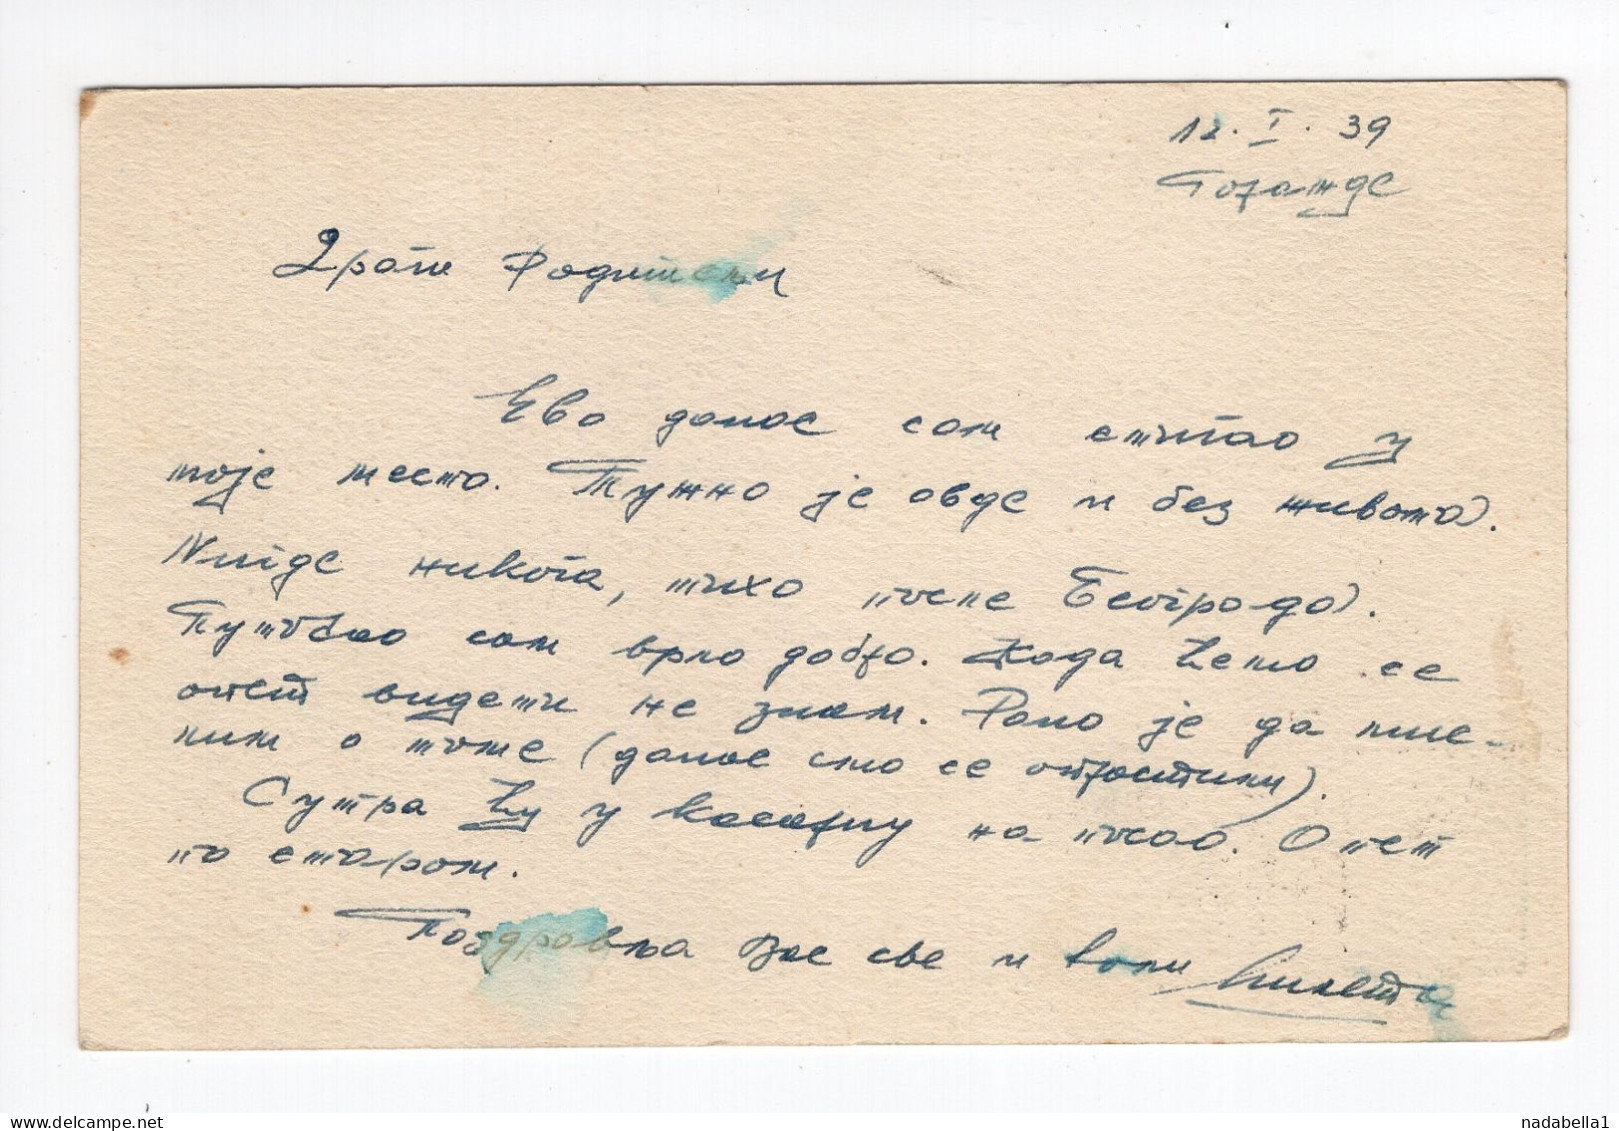 12. I. 39
Горажде
Драги Родитељи
Ево данас сам стигао у
моје место. Тужно је овде и без живота.
Нигде никога, тихо после Београда.
Путовао сам врло добро. Када ћемо се
опет видети не знам. Рано је да мис-
лим о томе (данас смо се опростили).
Сутра ћу у касарну на посао. Опет
по старом.
Поздравља Вас све и воли
nadabella1